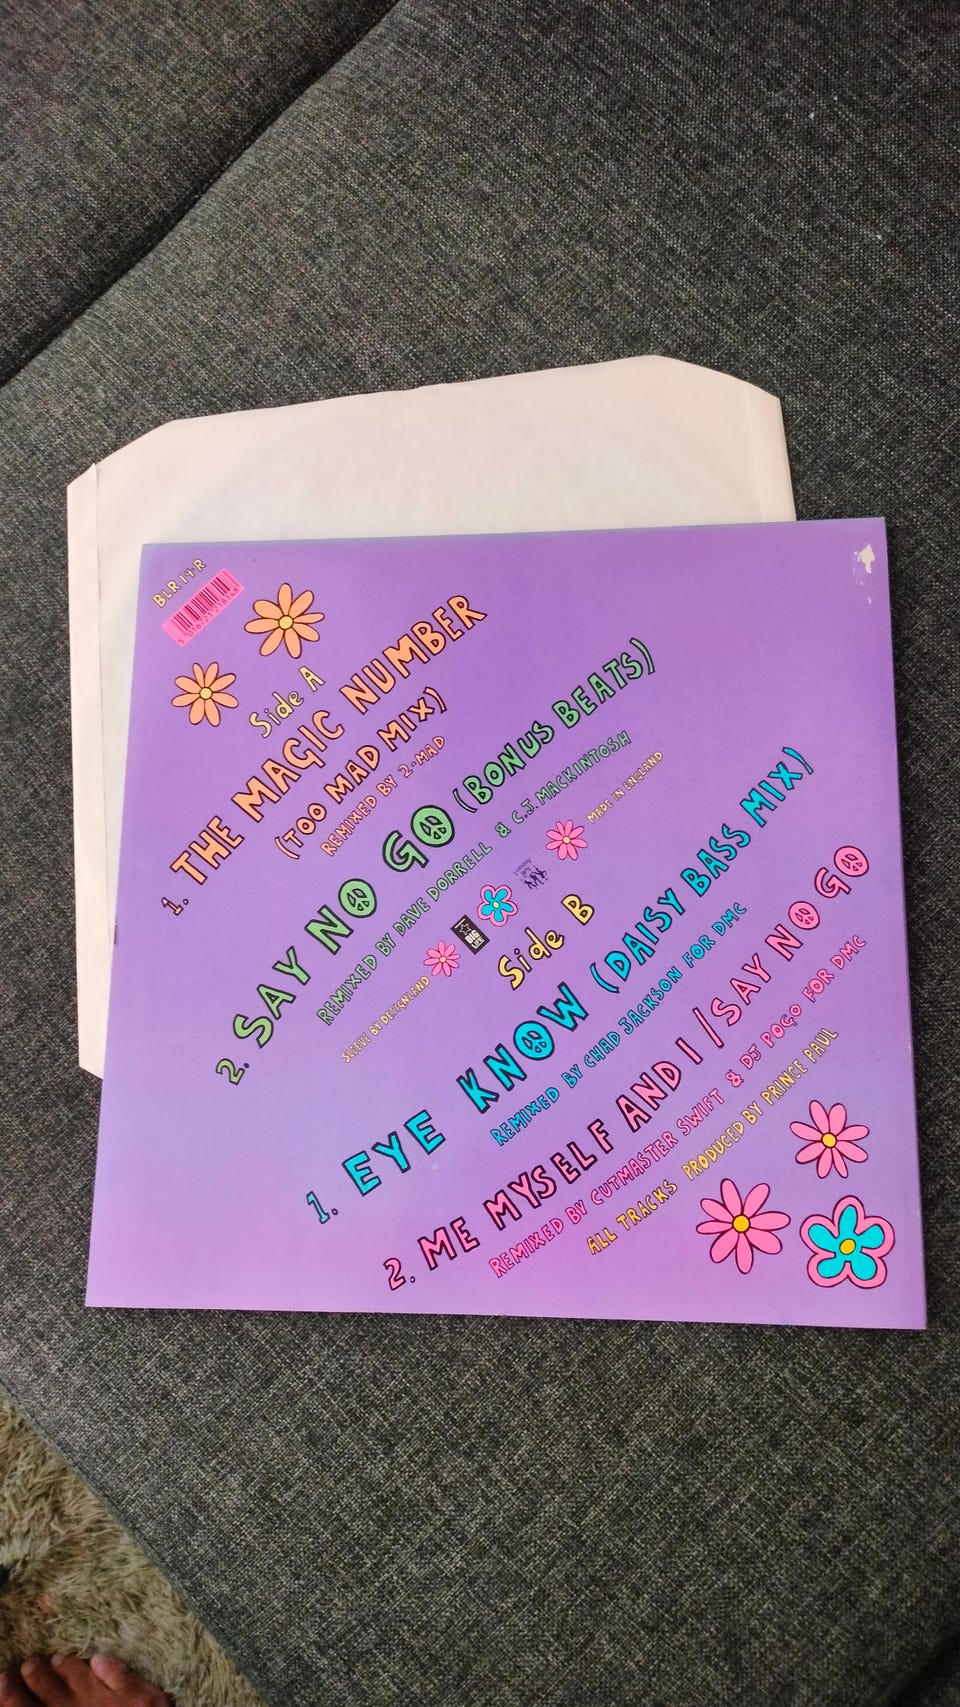 BLR 14 R
Side A
1. THE MAGIC NUMBER
(TOO MAD MIX)
REMIXED BY 2-MAD
2. SAY NO GO (BONUS BEATS)
REMIXED BY DAVE DORRELL & C.J. MACKINTOSH
SLEEVE BY DESIGNLAND
BIG
LIFE
MADE IN ENGLAND
Side B
1. EYE KNOW (DAISY BASS MIX)
REMIXED BY CHAD JACKSON FOR DMC
2. ME MYSELF AND I / SAY NO GO
REMIXED BY CUTMASTER SWIFT & DJ POGO FOR DMC
ALL TRACKS PRODUCED BY PRINCE PAUL